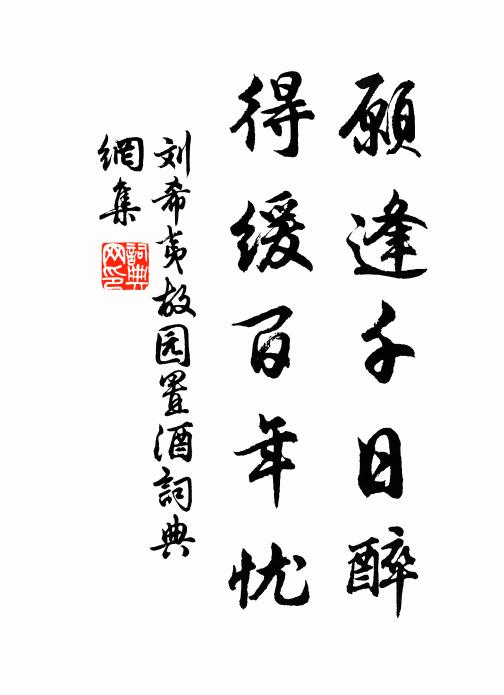 願逢千日醉
得缓百年忧
刘希夷故园置酒詞典
網集
詞典
网印